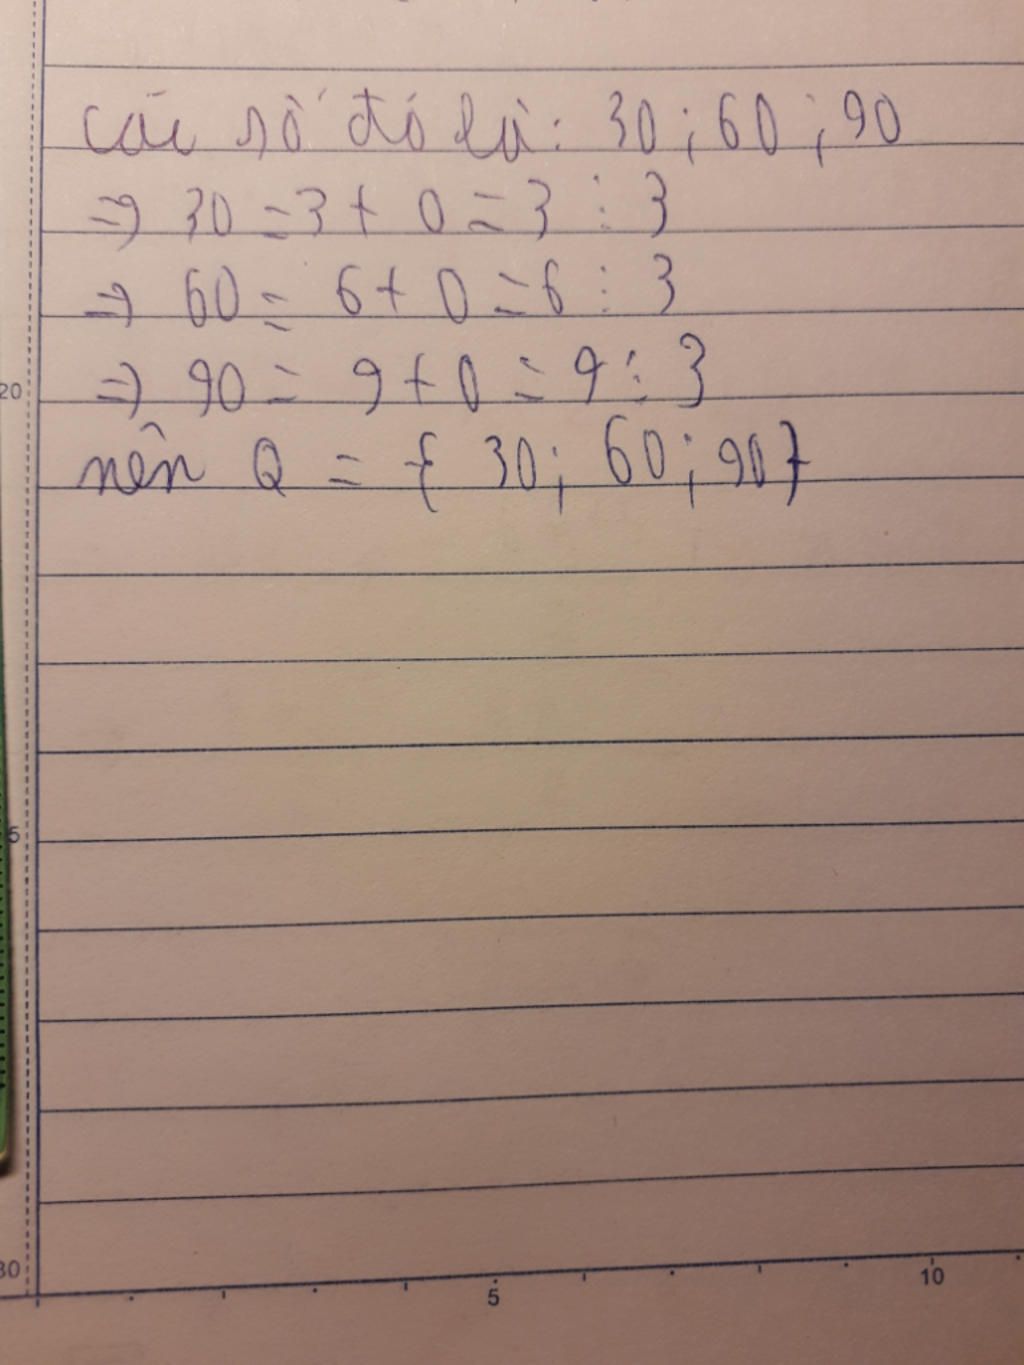 các số đó là: 30 ; 60 ; 90
=> 30 = 3 + 0 = 3 ⋮ 3
=> 60 = 6 + 0 = 6 ⋮ 3
20 => 90 = 9 + 0 = 9 ⋮ 3
nên Q = { 30 ; 60 ; 90 }
5
30
5 10